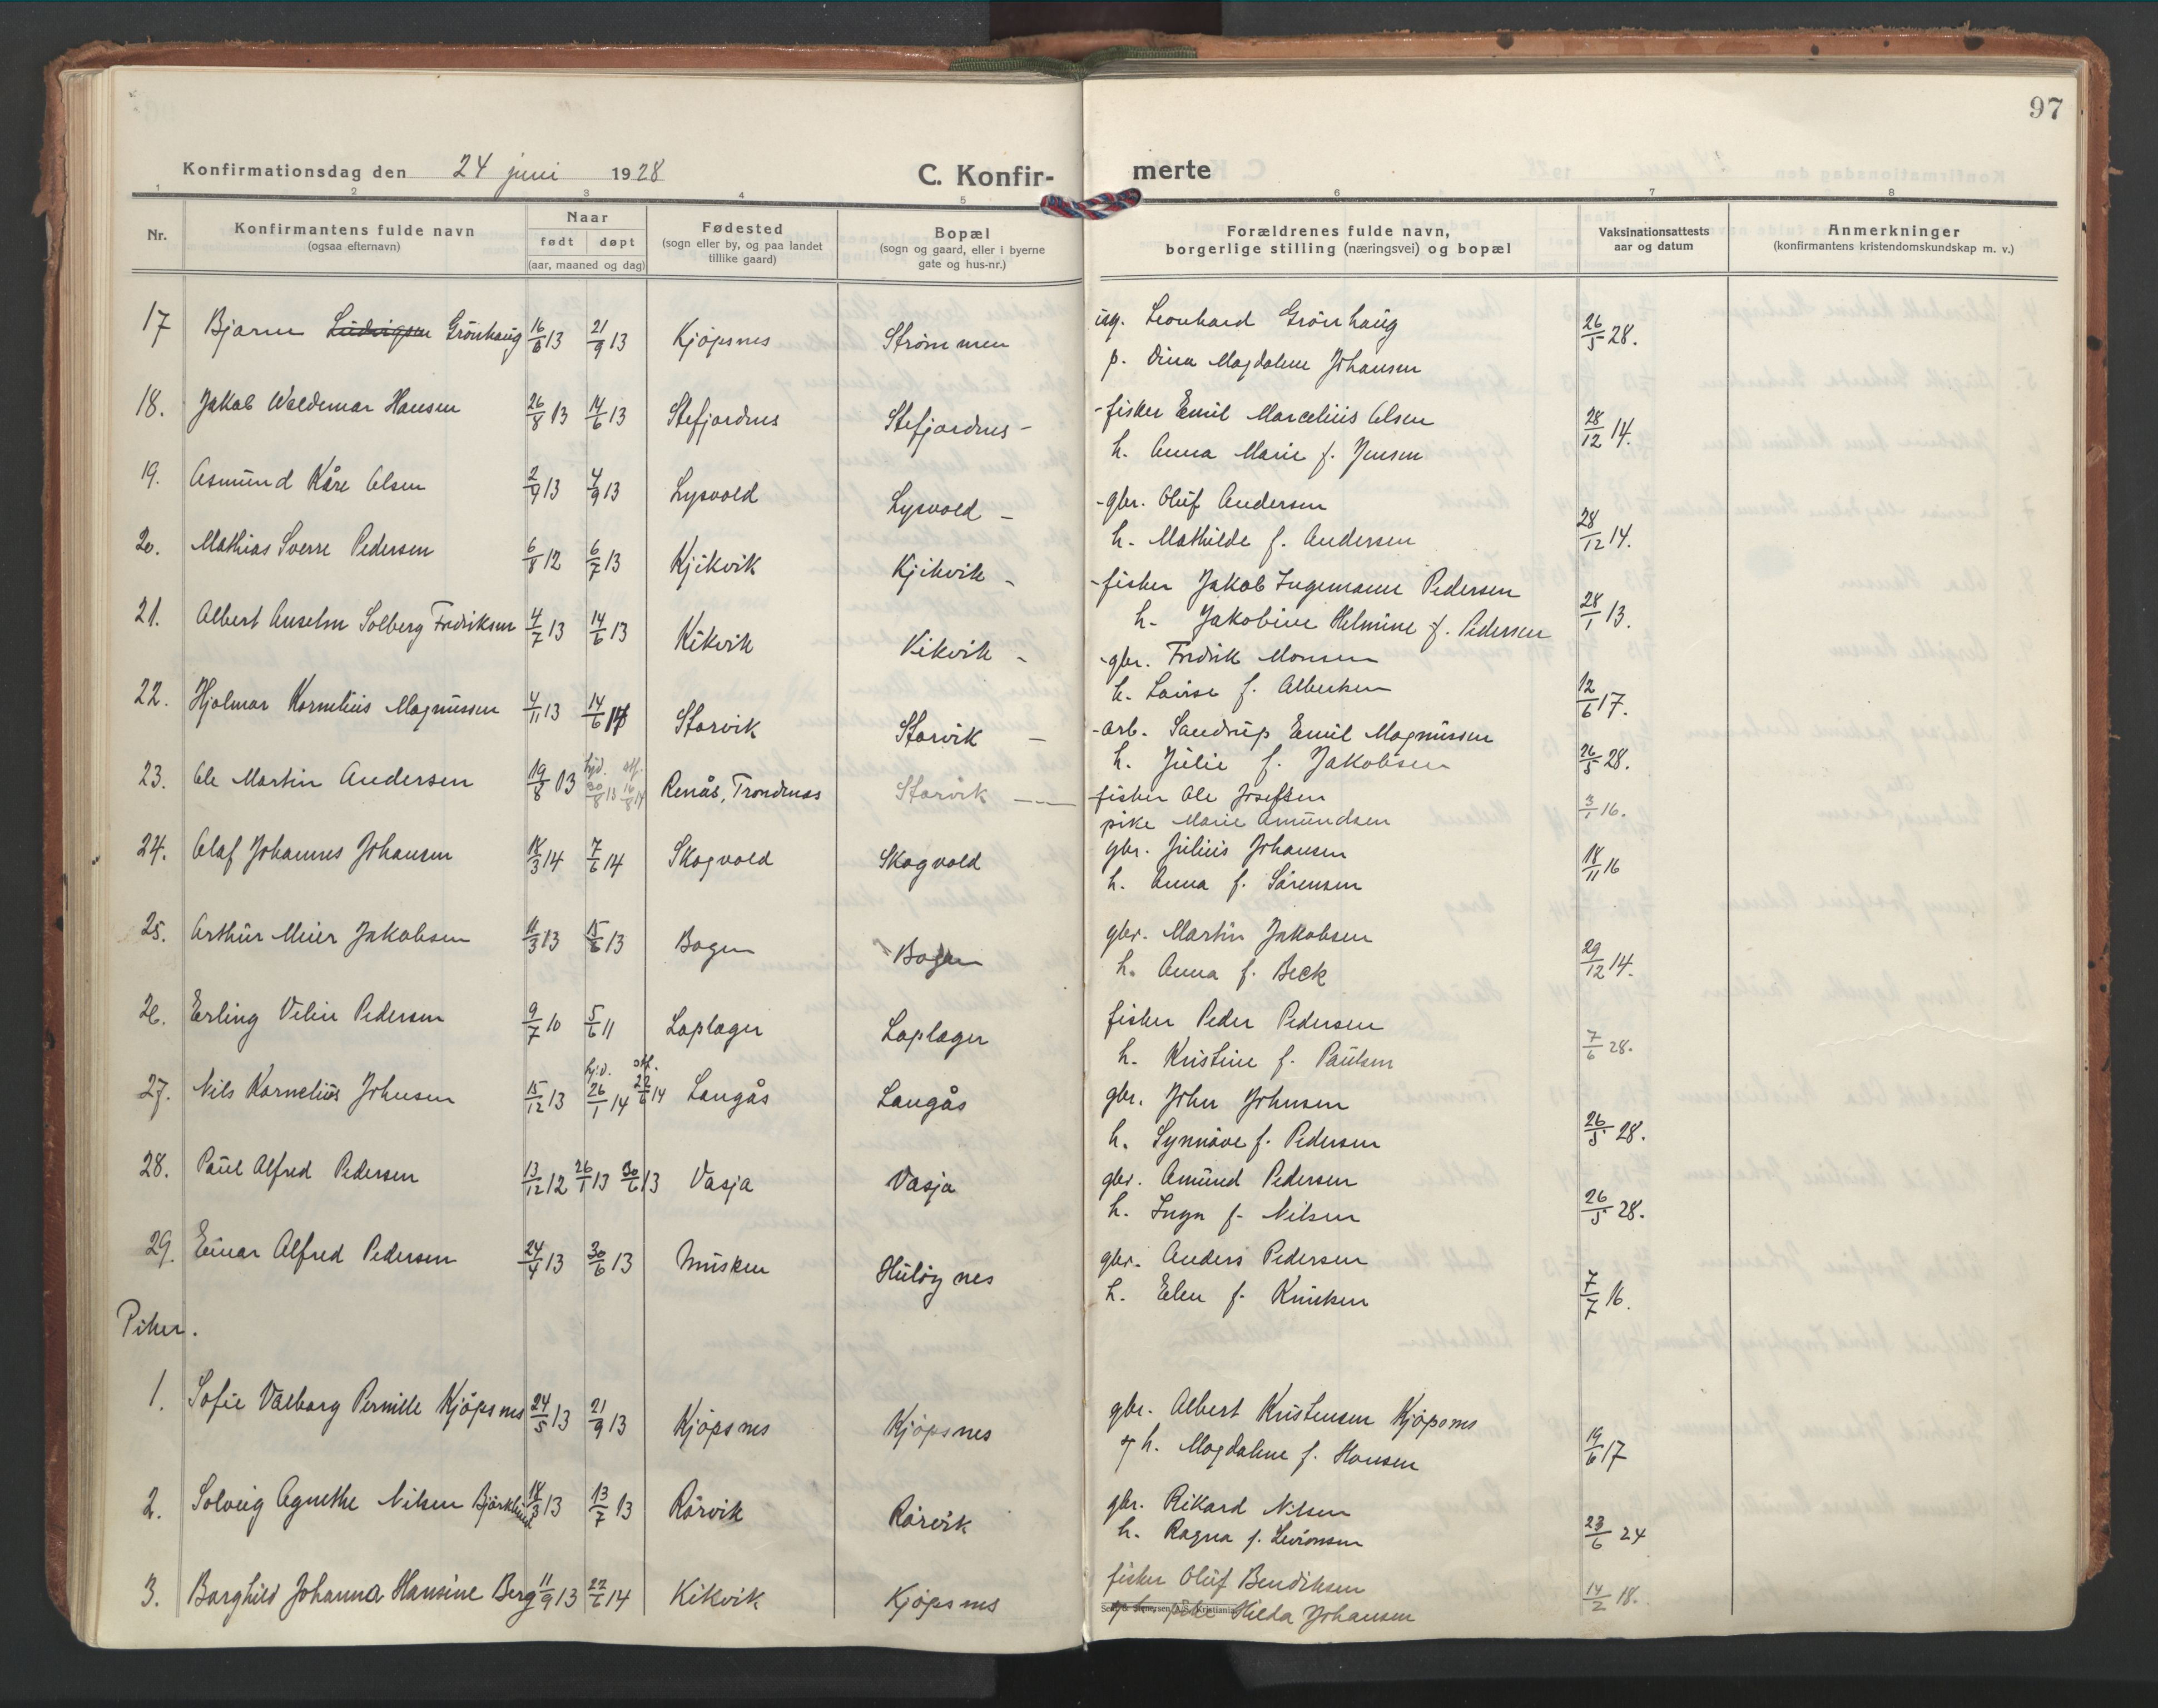 97
Konfirmationsdag den 24 juni 1928 C. Konfir- merte
1 2 3 4 5 6 7 8
Nr. Konfirmantens fulde navn (ogsaa efternavn) Naar født døpt (aar, maaned og dag) Fødested (sogn eller by, og paa landet tillike gaard) Bopæl (sogn og gaard, eller i byerne gate og hus-nr.) Forældrenes fulde navn, borgerlige stilling (næringsvei) og bopæl Vaksinationsattests aar og datum Anmerkninger (konfirmantens kristendomskundskap m. v.)
17 Bjarne Ludvigsen Grönhaug 16/6 13 21/9 13 Kjöpsnes Strømmen ug. Leonhard Grönhaug 26/5 28.
p. Dina Magdalene Johansen
18. Jakob Waldemar Hansen 26/8 13 14/6 13 Stefjordnes Stefjordnes - - fisker Emil Marcelius Olsen 28/12 14.
h. Anna Marie f. Jensen
19. Asmund Kåre Olsen 2/4 13 4/9 13 Lysvold Lysvold - - gbr. Oluf Andersen 28/12 14.
h. Mathilde f. Andersen
20. Mathias Sverre Pedersen 6/8 12 6/7 13 Kjikvik Kjikvik - - fisker Jakob Ingemann Pedersen 28/1 13.
h. Jakobine Helmine f. Pedersen
21. Albert Anselm Solberg Fredriksen 4/7 13 14/6 13 Kikvik Kikvik - - gbr. Fredrik Monsen 12/6 17.
h. Lovise f. Albertsen
22. Hjalmar Kornelius Magnussen 4/11 13 14/6 14 Storvik Storvik - - arb. Sandrup Emil Magnussen 26/5 28.
h. Julie f. Jakobsen
23. Ole Martin Andersen 19/8 13 hjd. 30/8 13 16/8 14 Renås, Trondenes Storvik - fisker Ole Josefsen 3/1 16.
pike Marie Amundsen
24. Olaf Johannes Johansen 18/3 14 7/6 14 Skogvold Skogvold gbr. Julius Johansen 18/11 16
h. Anna f. Sörensen
25. Arthur Meier Jakobsen 11/3 13 15/6 13 Bogen Bogen gbr. Martin Jakobsen 29/12 14.
h. Anna f. Beck
26. Erling Vilin Pedersen 9/7 10 5/6 11 Laplager Laplager fisker Peder Pedersen 7/6 28.
h. Kristine f. Paulsen
27. Nils Kornelius Johnsen 15/12 13 hjd. 26/1 14 22/6 14 Langås Langås gbr. John Johnsen 26/5 28.
h. Synnöve f. Pedersen
28. Paul Alfred Pedersen 13/12 12 26/1 13 30/6 13 Vasja Vasja gbr. Amund Pedersen 26/5 28.
h. Inga f. Nilsen
29. Einar Alfred Pedersen 24/4 13 30/6 13 Musken Hulöynes gbr. Anders Pedersen 7/7 16.
h. Elen f. Knutsen
Piker.
1. Sofie Valborg Pernille Kjöpsnes 24/5 13 21/9 13 Kjöpsnes Kjöpsnes gbr. Albert Kristensen Kjöpsnes 19/6 17
og h. Magdalene f. Hansen
2. Solveig Agnethe Nilsen Björklund 18/3 13 13/7 13 Rörvik Rörvik gbr. Rikard Nilsen 23/6 24
h. Ragna f. Levionsen
3. Borghild Johanna Hansine Berg 11/9 13 22/6 14 Kikvik Kjöpsnes fisker Oluf Bendiksen 14/2 18.
pike Hilda Johansen